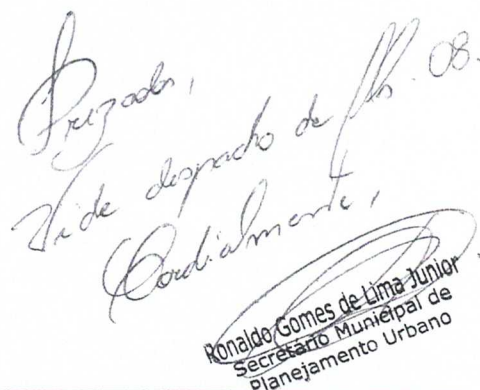 Prezados,
Vide despacho de fls. 08.
Cordialmente,
Ronaldo Gomes de Lima Junior
Secretário Municipal de
Planejamento Urbano